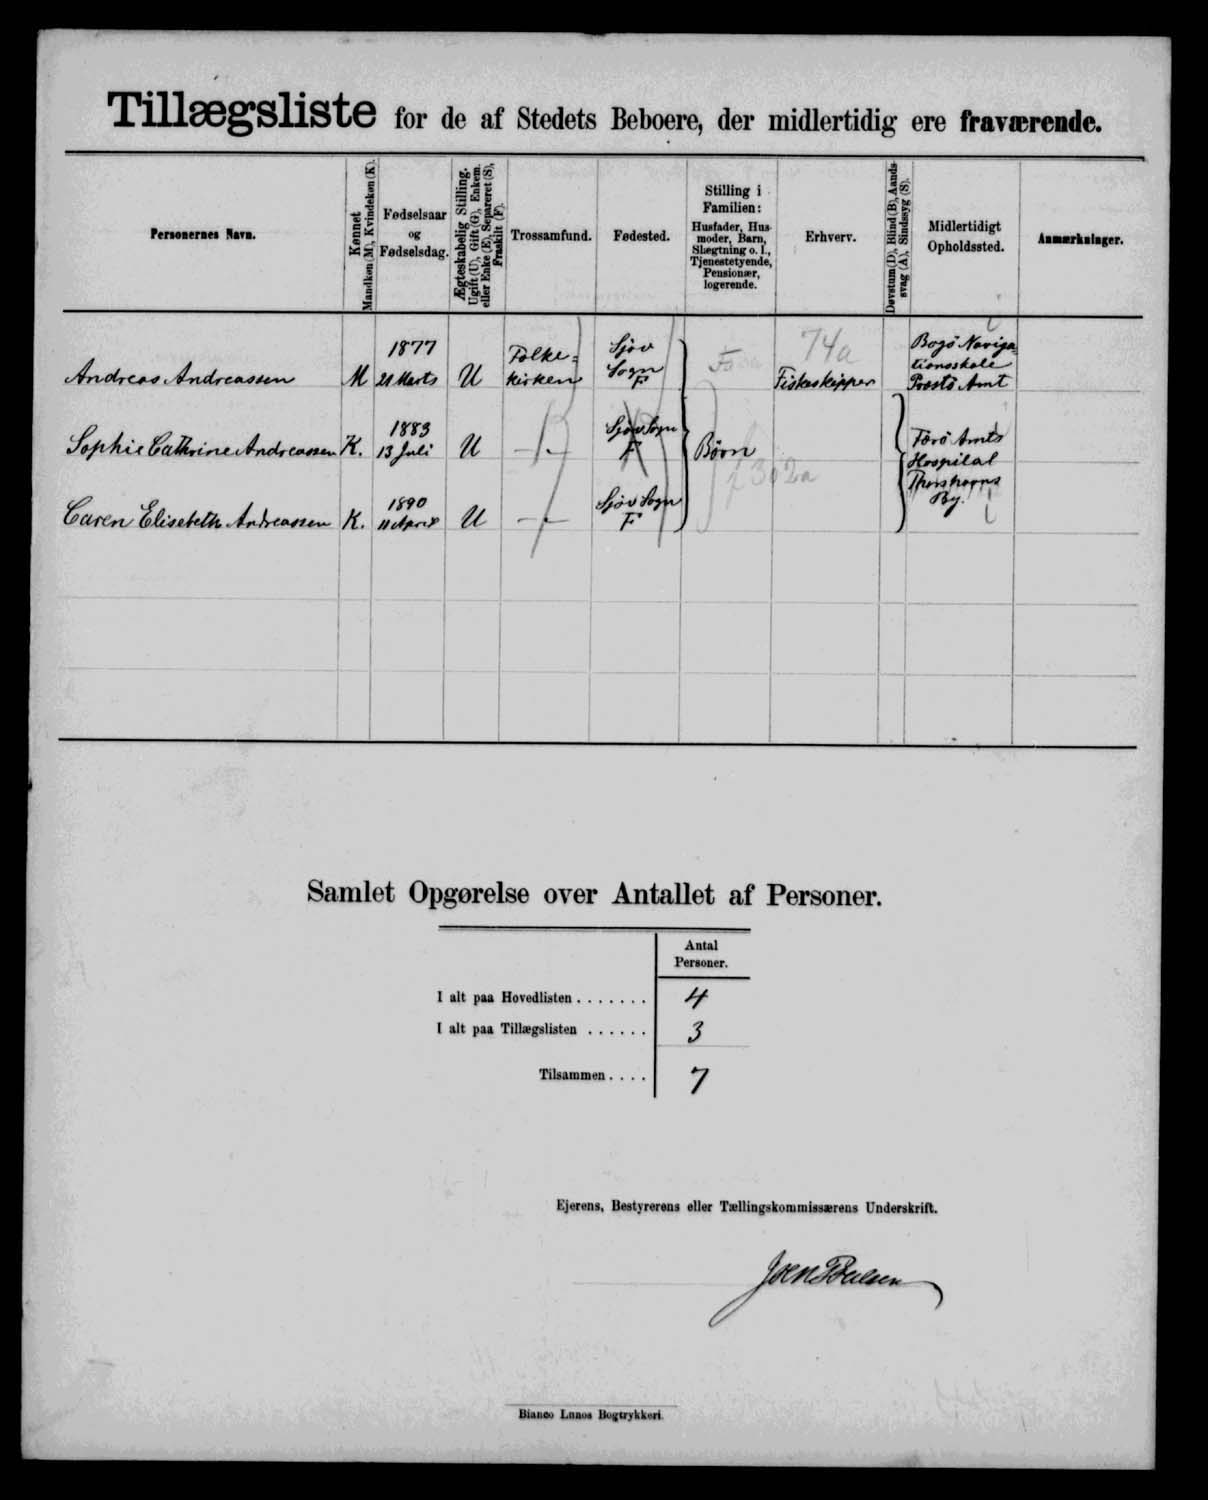 Tillægsliste for de af Stedets Beboere, der midlertidig ere fraværende.
Personernes Navn.
Kønnet
Mandkøn (M), Kvindekøn (K).
Fødselsaar
og
Fødselsdag.
Ægteskabelig Stilling.
Ugift (U), Gift (G), Enkem.
eller Enke (E), Separeret (S),
Fraskilt (F).
Trossamfund.
Fødested.
Stilling i
Familien:
Husfader, Hus-
moder, Barn,
Slægtning o. l.,
Tjenestetyende,
Pensionær,
logerende.
Erhverv.
Døvstum (D), Blind (B), Aands-
svag (A), Sindssyg (S).
Midlertidigt
Opholdssted.
Anmærkninger.
Andreas Andreassen M 1877
21 Marts U Folke=
kirken Sjøv
Sogn
F Fiskeskipper 74a Bogø Naviga=
tionsskole
Præstø Amt
Sophie Cathrine Andreassen K. 1883
13 Juli U —"— Sjøv Sogn
F Børn Færø Amts
Hospital
Thorshavns
By.
Caren Elisebeth Andreassen K. 1890
11 April U —"— Sjøv Sogn
F
Samlet Opgørelse over Antallet af Personer.
Antal
Personer.
I alt paa Hovedlisten . . . . . . . 4
I alt paa Tillægslisten . . . . . . 3
Tilsammen . . . . 7
Ejerens, Bestyrerens eller Tællingskommissærens Underskrift.
Joen Poulsen
Bianco Lunos Bogtrykkeri.